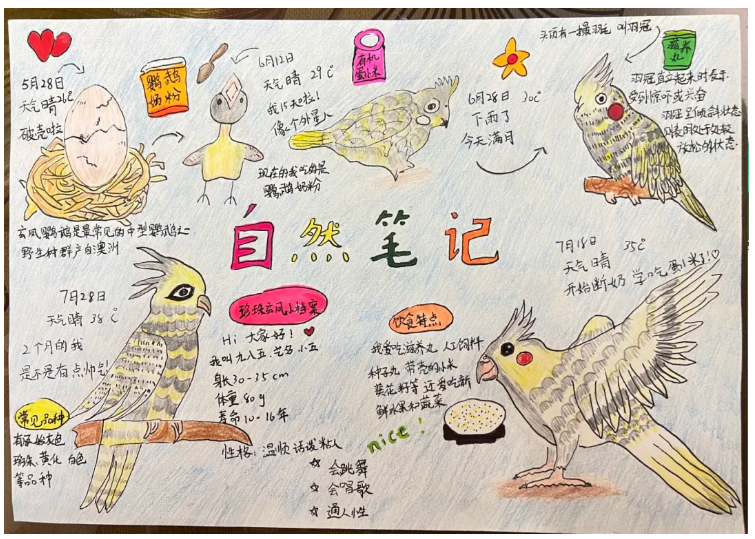 5月28日
天气晴26℃
破壳啦
鹦鹉
奶粉
6月12日
天气晴 29℃
我15天啦!
像个外星人
现在的我吃的是
鹦鹉奶粉
有机
蛋小米
6月28日 30℃
下雨了
今天满月
头顶有一撮羽毛 叫羽冠
滋养
丸
羽冠直立起来时表示
受外惊吓或兴奋
羽冠呈倾斜状态
放松的状态
玄凤鹦鹉是最常见的中型鹦鹉之一
野生种群产自澳洲
自然笔记
7月18日 35℃
天气晴
开始断奶 学吃蛋小米了!
7月28日
天气晴 38℃
2个月的我
是不是有点帅气
珍珠玄凤小档案
Hi 大家好!
我叫九八五 艺名小五
身长30-35cm
体重80g
寿命10-16年
性格:温顺 活泼 粘人
☆ 会跳舞
☆ 会唱歌
☆ 通人性
饮食特点
我爱吃滋养丸 人工饲料
种子丸 带壳的小米
葵花籽等 还爱吃新
鲜水果和蔬菜
nice!
常见品种
珍珠 黄化 白色
等品种